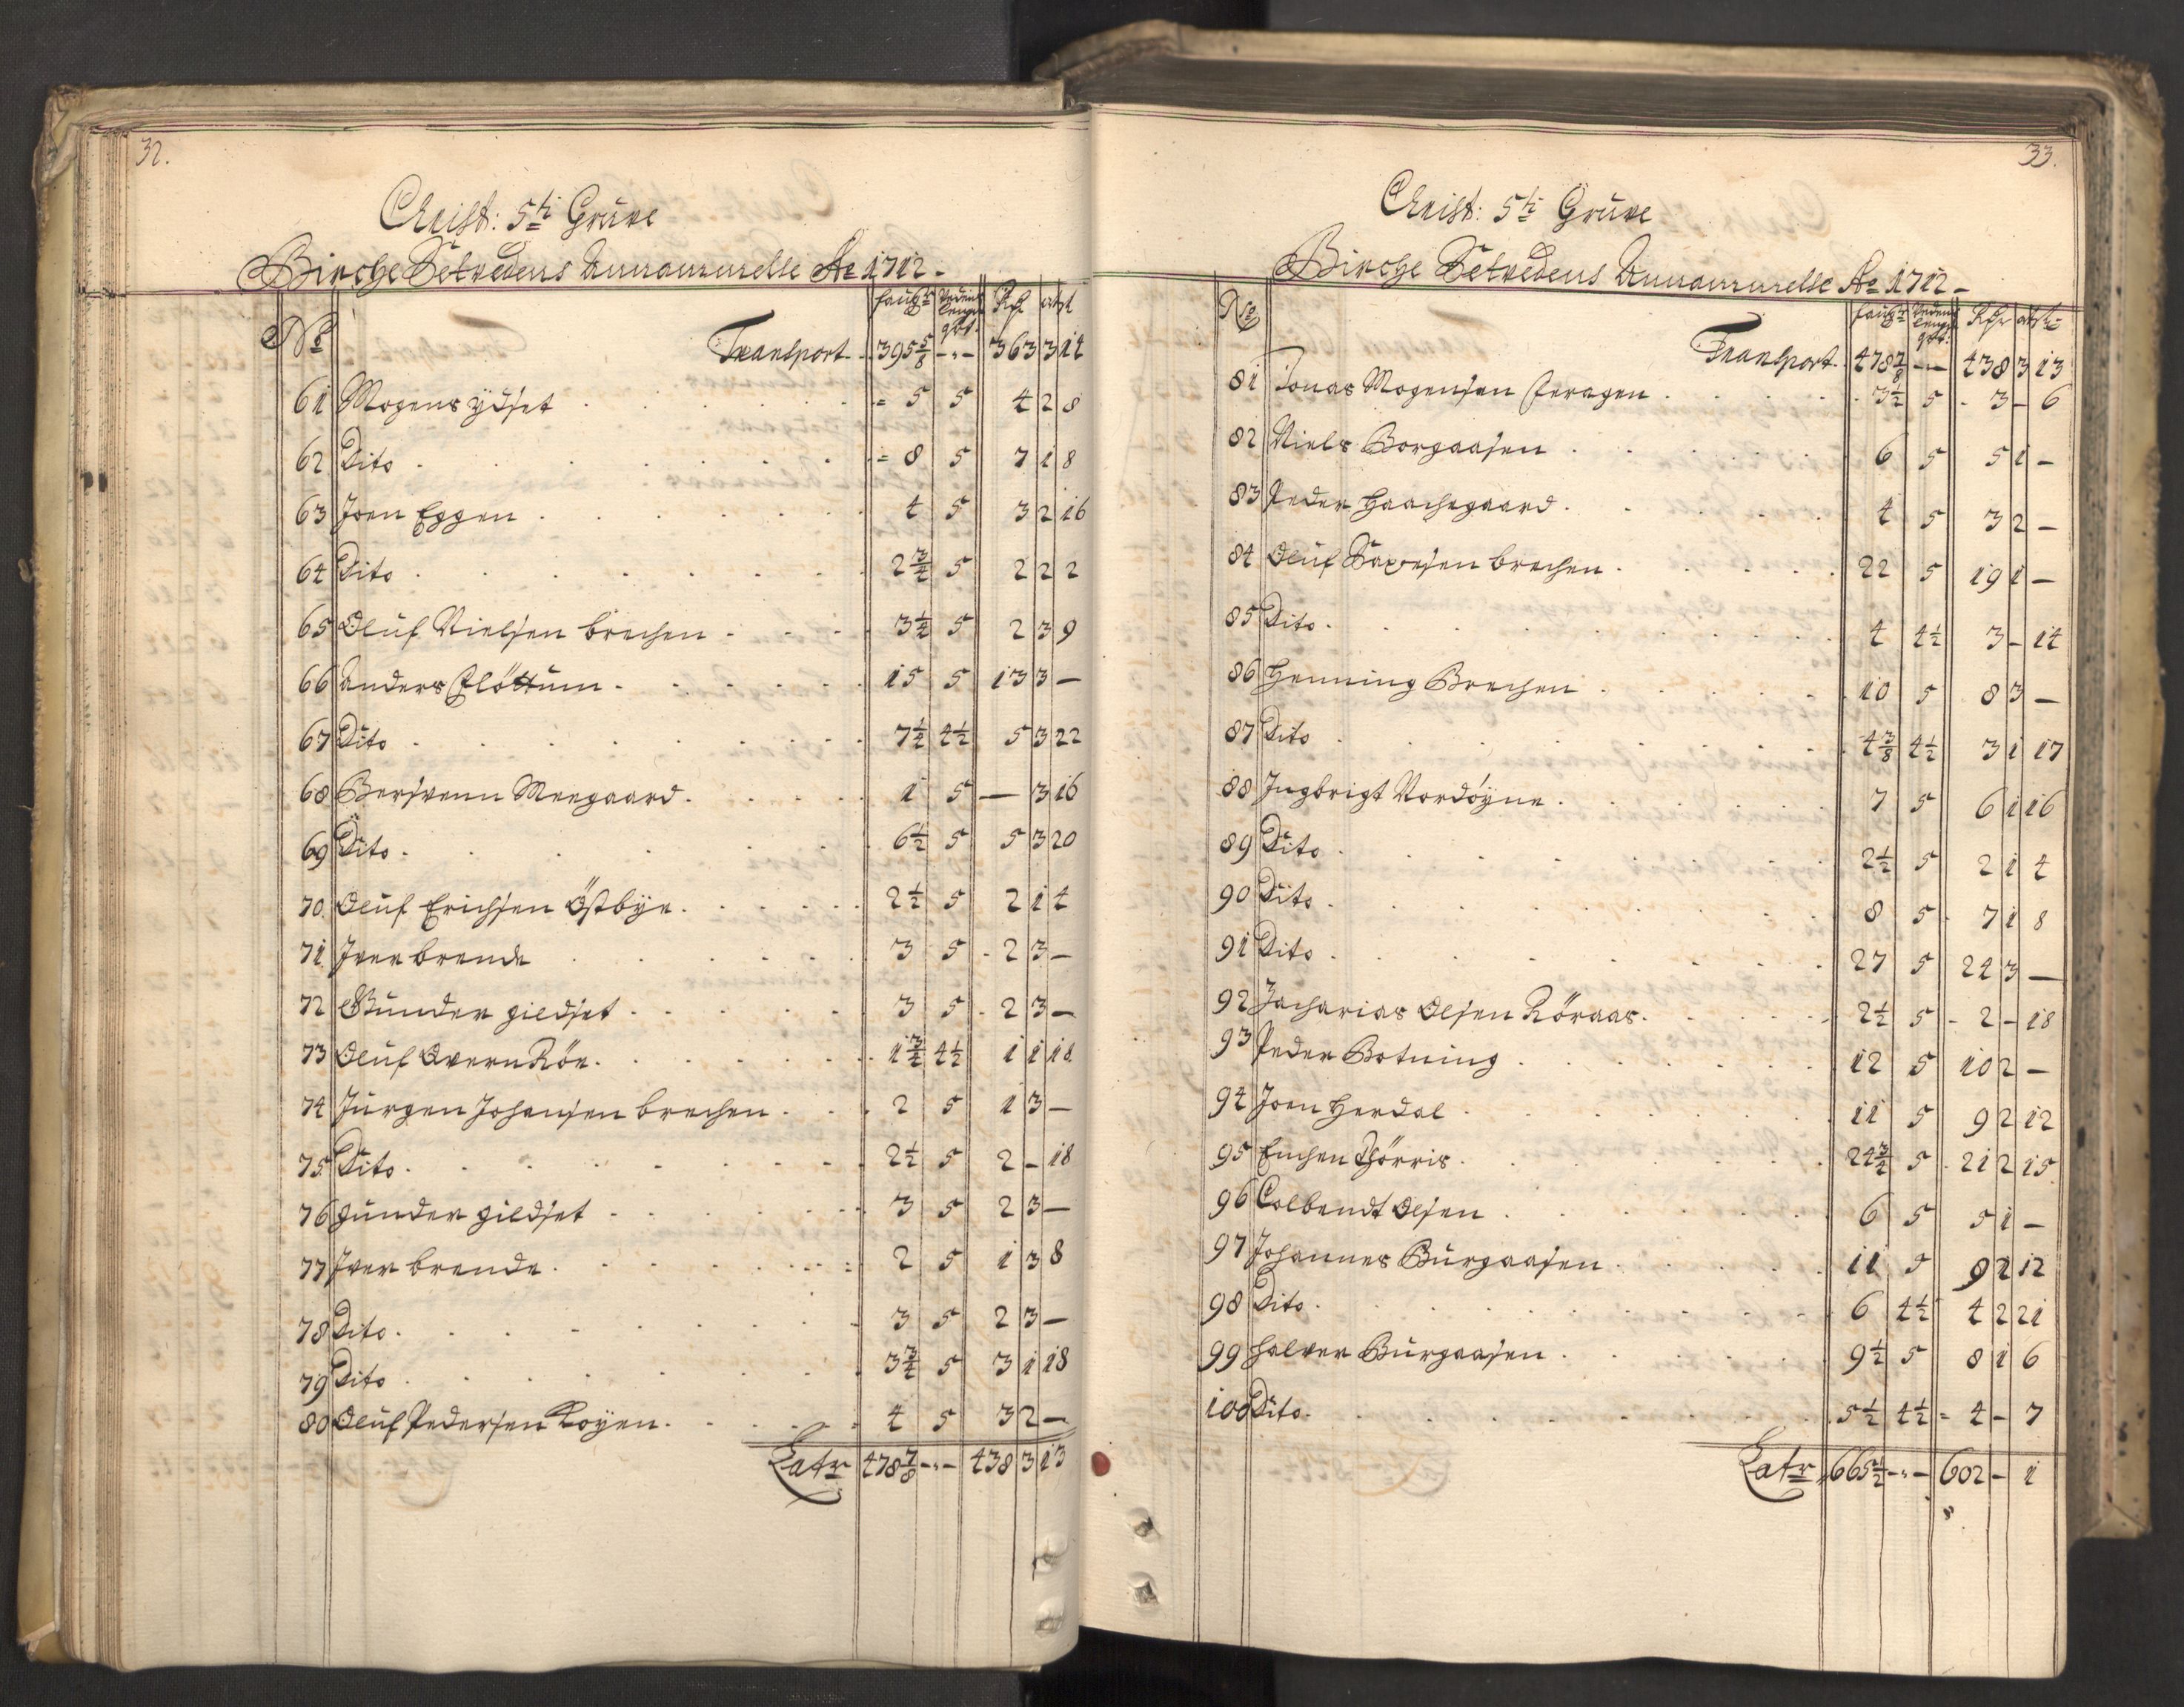 32.
Christ: 5ti Grüve
Birche Setvedens Annammelse Ao 1712.
No faufr Vedens lengde qrt. Rdr ort ß
Transport 395 5/8 - - 363 3 14
61 Mogens ydset = 5 5 4 2 8
62 Dito = 8 5 7 1 8
63 Joen Eggen 4 5 3 2 16
64 Dito 2 3/4 5 2 2 2
65 Oluf Nielsen brechen 3 1/4 5 2 3 9
66 Anders Flöttum 15 5 13 3 -
67 Dito 7 1/4 4 1/2 5 3 22
68 Bersvenn Meegaard 1 5 - 3 16
69 Dito 6 1/2 5 5 3 20
70 Oluf Erichsen Östbye 2 1/2 5 2 1 4
71 Iver brende 3 5 2 3 -
72 Gunder gildset 3 5 2 3 -
73 Oluf Overn Röe 1 3/4 4 1/2 1 1 18
74 Jürgen Johansen brechen 2 5 1 3 -
75 Dito 2 1/2 5 2 - 18
76 gunder gildset 3 5 2 3 -
77 Iver brende 2 5 1 3 8
78 Dito 3 5 2 3 -
79 Dito 3 3/4 5 3 1 18
80 Oluf Pedersen Royen 4 5 3 2 -
Latr 478 7/8 - - 438 3 13
33.
Christ: 5ti Grüve
Birche Setvedens Annammelse Ao 1712
No faufr Vedens lengde qrt: Rdr ort ß
Transport 478 7/8 - 438 3 13
81 Jonas Mogensen Feragen 3 1/2 5 3 - 6
82 Niels Borgaasen 6 5 5 1 -
83 Peder Haachegaard 4 5 3 2 -
84 Oluf Saxesen brechen 22 5 19 1 -
85 Dito 4 4 1/2 3 - 14
86 Henning Brechen 10 5 8 3 -
87 Dito 4 3/8 4 1/2 3 1 17
88 Ingbrigt Nordöyne 7 5 6 1 16
89 Dito 2 1/2 5 2 1 4
90 Dito 8 5 7 1 8
91 Dito 27 5 24 3 -
92 Zacharias Olsen Röraas 2 1/2 5 2 - 18
93 Peder Botning 12 5 10 2 -
94 Joen Herdal 11 5 9 2 12
95 Enchen Thörris 24 3/4 5 21 2 15
96 Colbendt Olsen 6 5 5 1 -
97 Johannes Bürgaasen 11 5 9 2 12
98 Dito 6 4 1/2 4 2 21
99 Halver Bürgaasen 9 1/2 5 8 1 6
100 Dito 5 1/2 4 1/2 = 4 - 7
Latr 665 1/2 - - 602 - 1